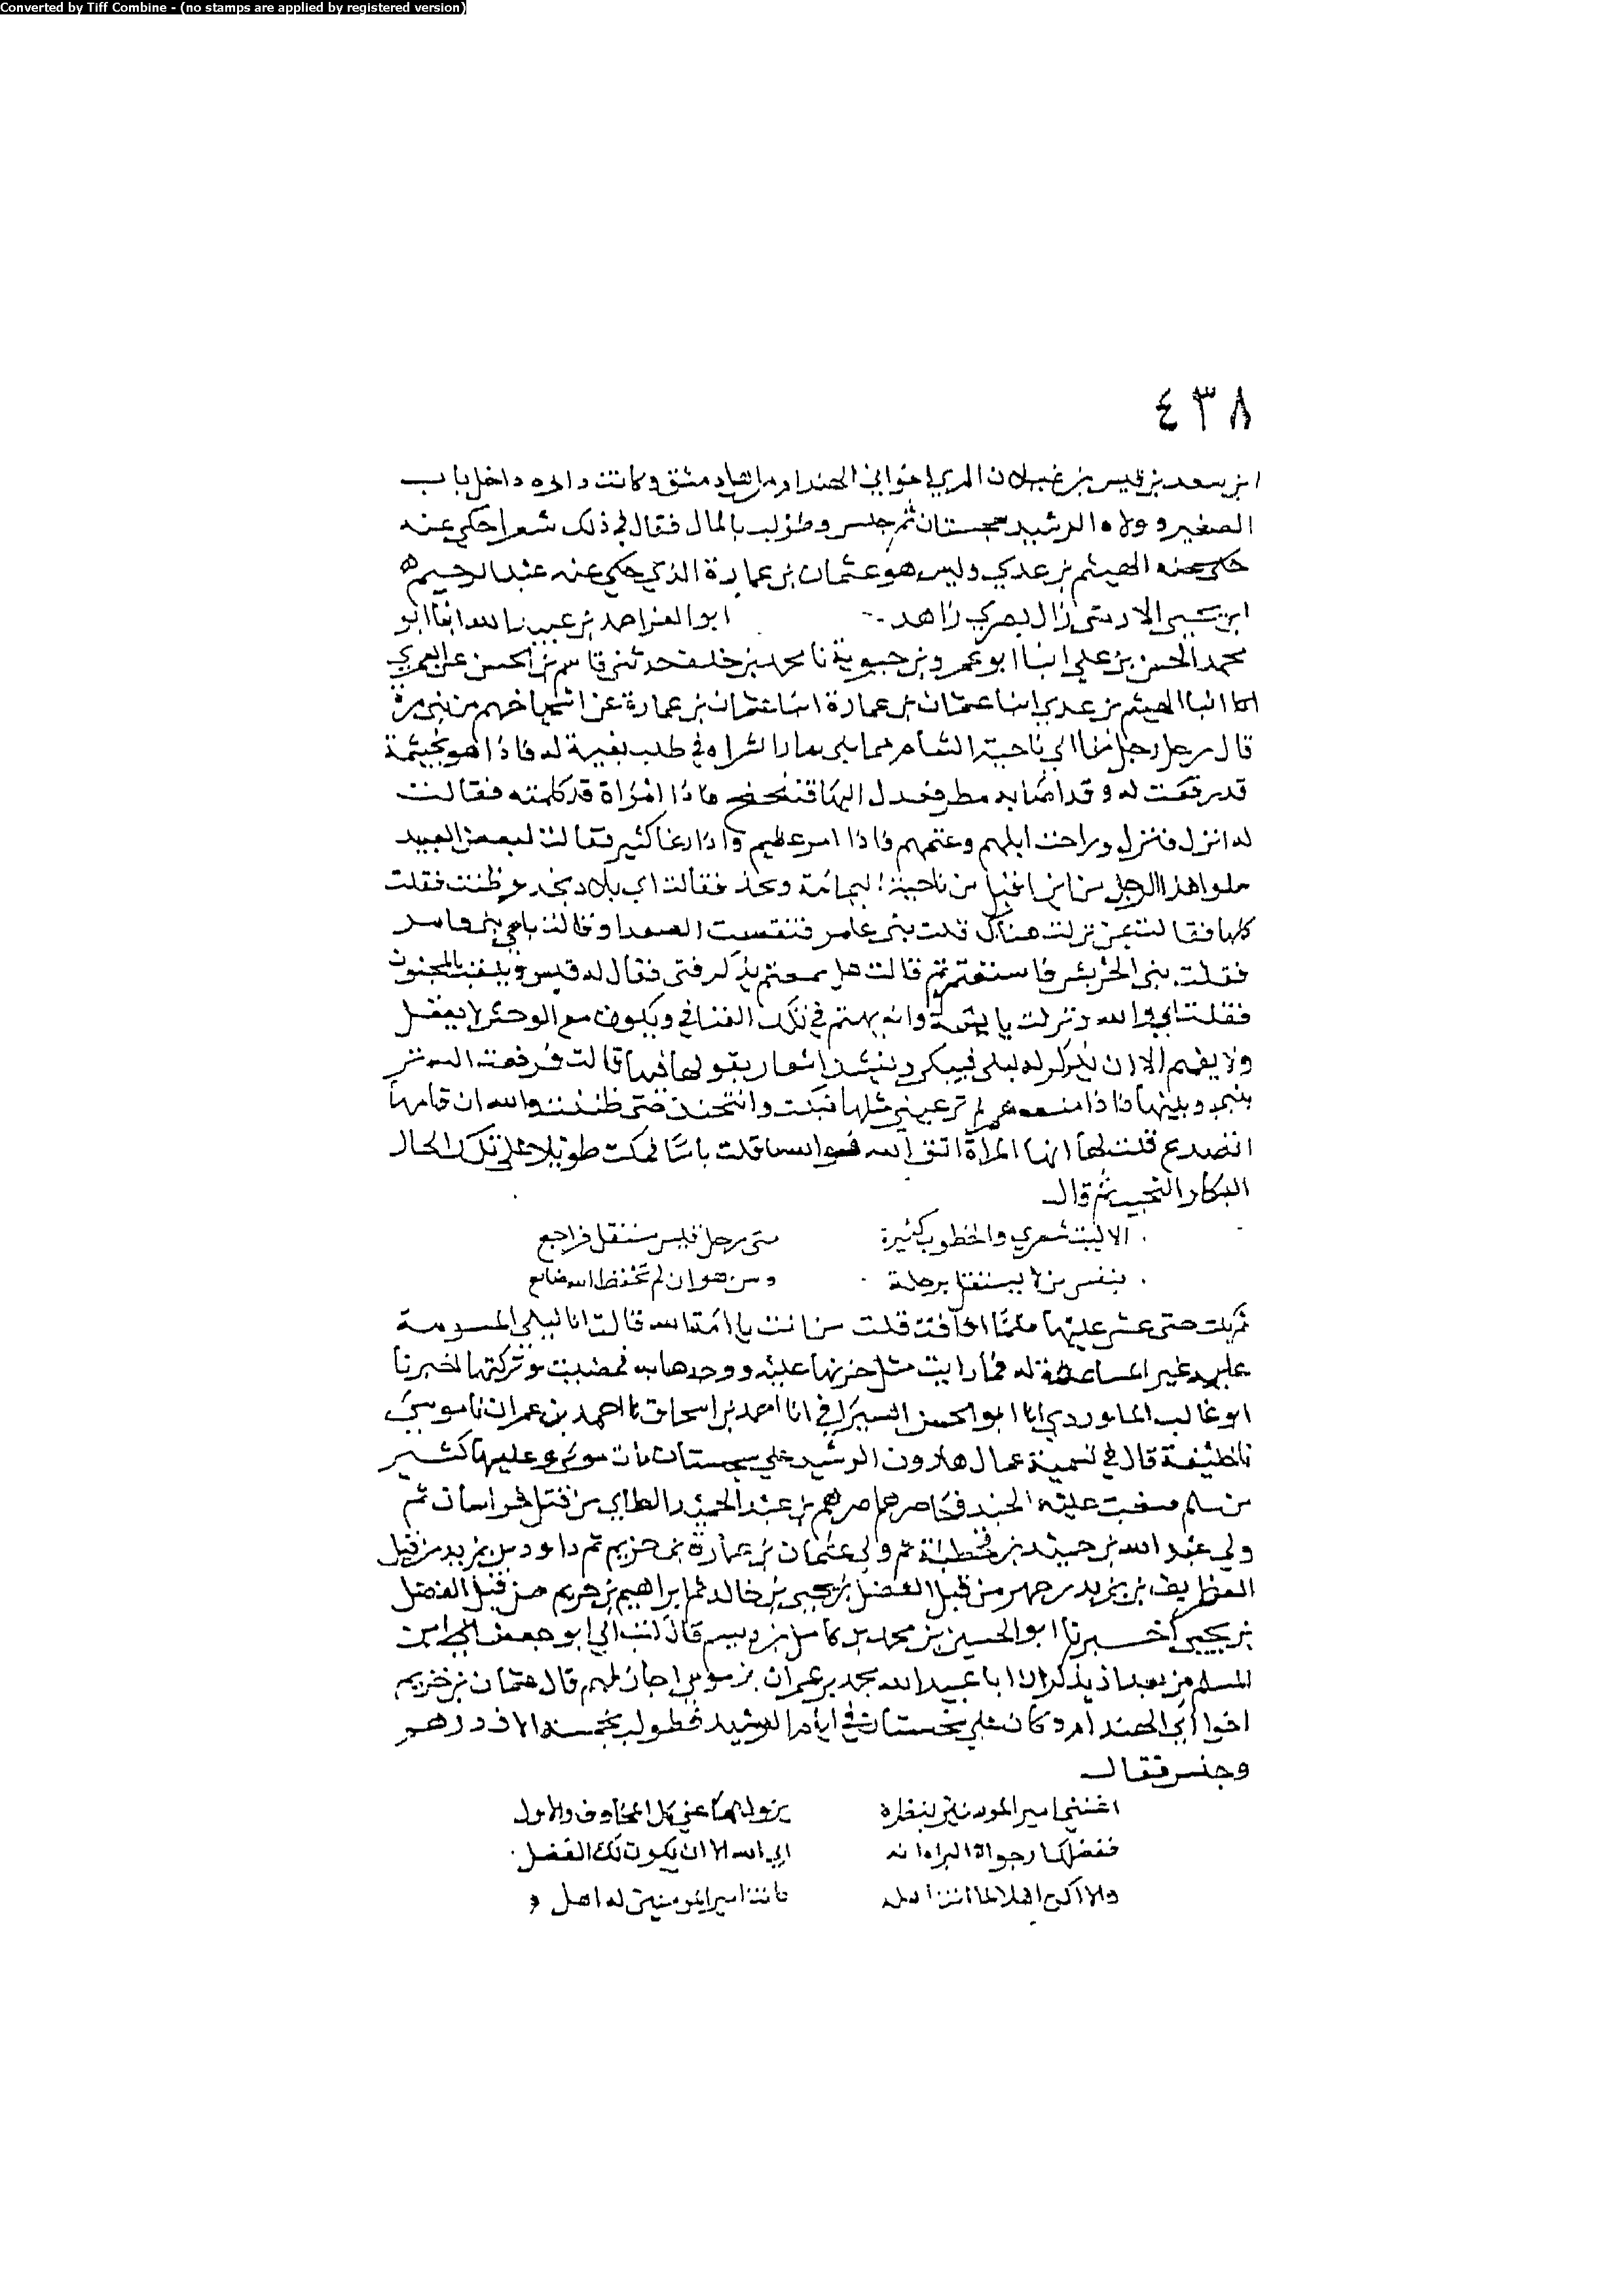 Converted by Tiff Combine - (no stamps are applied by registered version)
٤٣٨
ابن سعد بن قيس بن غيلان المري اخوابي الهيدام من اهل دمشق وكانت داره داخل باب
الصغير وولاه الرشيد سجستان ثم جلس وطولب بالمال فقال في ذلك شعرا حكى عنه
حكى عنه الهيثم بن عدي وليس هو عثمان بن عمارة الذي حكى عنه عبد الرحيم
ابن يحيى ذاك بصري زاهد ابو العز احمد بن عبيد الله ابنا ابو
محمد الحسن بن علي ابنا ابو عمرو بن حيوية نا محمد بن خلف حدثني قاسم بن الحسن عن العمري
انا الهيثم بن عدي ابنا عثمان بن عمارة عن اشياخهم من بني مرة
قال رحل رجل منا الى ناحية الشام مما يلي الشراه في طلب بغية له فاذا هو بخيمة
قد رفعت له وقد اصابه مطر فعدل اليها فتنحنح فاذا امراة قد كلمته فقالت
له انزل فنزل وراحت ابلهم وغنمهم فاذا امر عظيم واذا رعا كثير فقالت لبعض العبيد
سلوا هذا الرجل من اين اقبل من ناحية اليمامة ونجد فقالت اي بلاد نجد وطئت فقلت
كلها فقالت بمن نزلت هناك قلت بني عامر فتنفست الصعدا وقالت باي بني عامر
فقلت بني الحريش فاستعبرت ثم قالت هل سمعتم بذكر فتى فقال له قيس ويلقب بالمجنون
فقلت اي والله ونزلت بابيه وانه يهيم في تلك الفيافي ويكون مع الوحش لا يعقل
ولا يفهم الا ان تذكر له ليلى فيبكي وينشد اشعار يقولها فيها قالت فرفعت الستر
بيني وبينها فاذا قمر لم تر عيني مثلها فبكت وانتحبت حتى ظننت والله ان قلبها
انصدع قلت لها ايها المراة اتق الله فوالله ما قلت باسا فمكثت طويلا على تلك الحال
البكاء والنحيب ثم قال
الا ليت شعري والخطوب كثيرة متى رحل قيس مستقل فراجع
بنفس من لا يستقل برحلة ومن هو ان لم يحفظ الله ضائع
ثم بكت حتى غشي عليها فلما افاقت قلت من انت يا امة الله قالت انا ليلى المسومة
عليه غير المساعدة له فما رايت مثل حزنها عليه ووجدها به فمضيت وتركتها اخبرنا
ابو غالب الماوردي انا ابو الحسن السيرافي انا احمد بن اسحاق نا احمد بن عمران نا موسى
نا خليفة قال في تسمية عمال هارون الرشيد على سجستان مات موسى وعليها كثير
بن سلم فشغبت عليه الجند بن عبد الحميد الطاي من قبل خراسان ثم
ولي عبد الله بن حميد بن قحطبة ثم ولي عثمان بن عمارة بن خزيم ثم داود بن يزيد من قبل
الغطريف بن يزيد من قبل الفضل بن يحيى بن خالد ثم ابراهيم بن خريم من قبل الفضل
بن يحيى اخبرنا ابو الحسين بن محمد بن كامل قال كتب الي ابو جعفر ابن
المسلمة يذكر ان ابا عبيد الله محمد بن عمران بن موسى اجاز لهم قال عثمان بن خريم
اخوا ابي الهيدام وكان على سجستان في ايام الرشيد فطولب بخمسة الاف درهم
وحبس فقال
اغثني امير المومنين بنظرة يزول بها عني كل المخاوف والازل
ففضلك ارجو ابي الله الا ان يكون لك الفضل
والا اكن اهلا لما انت اهله فانت امير المومنين له اهل